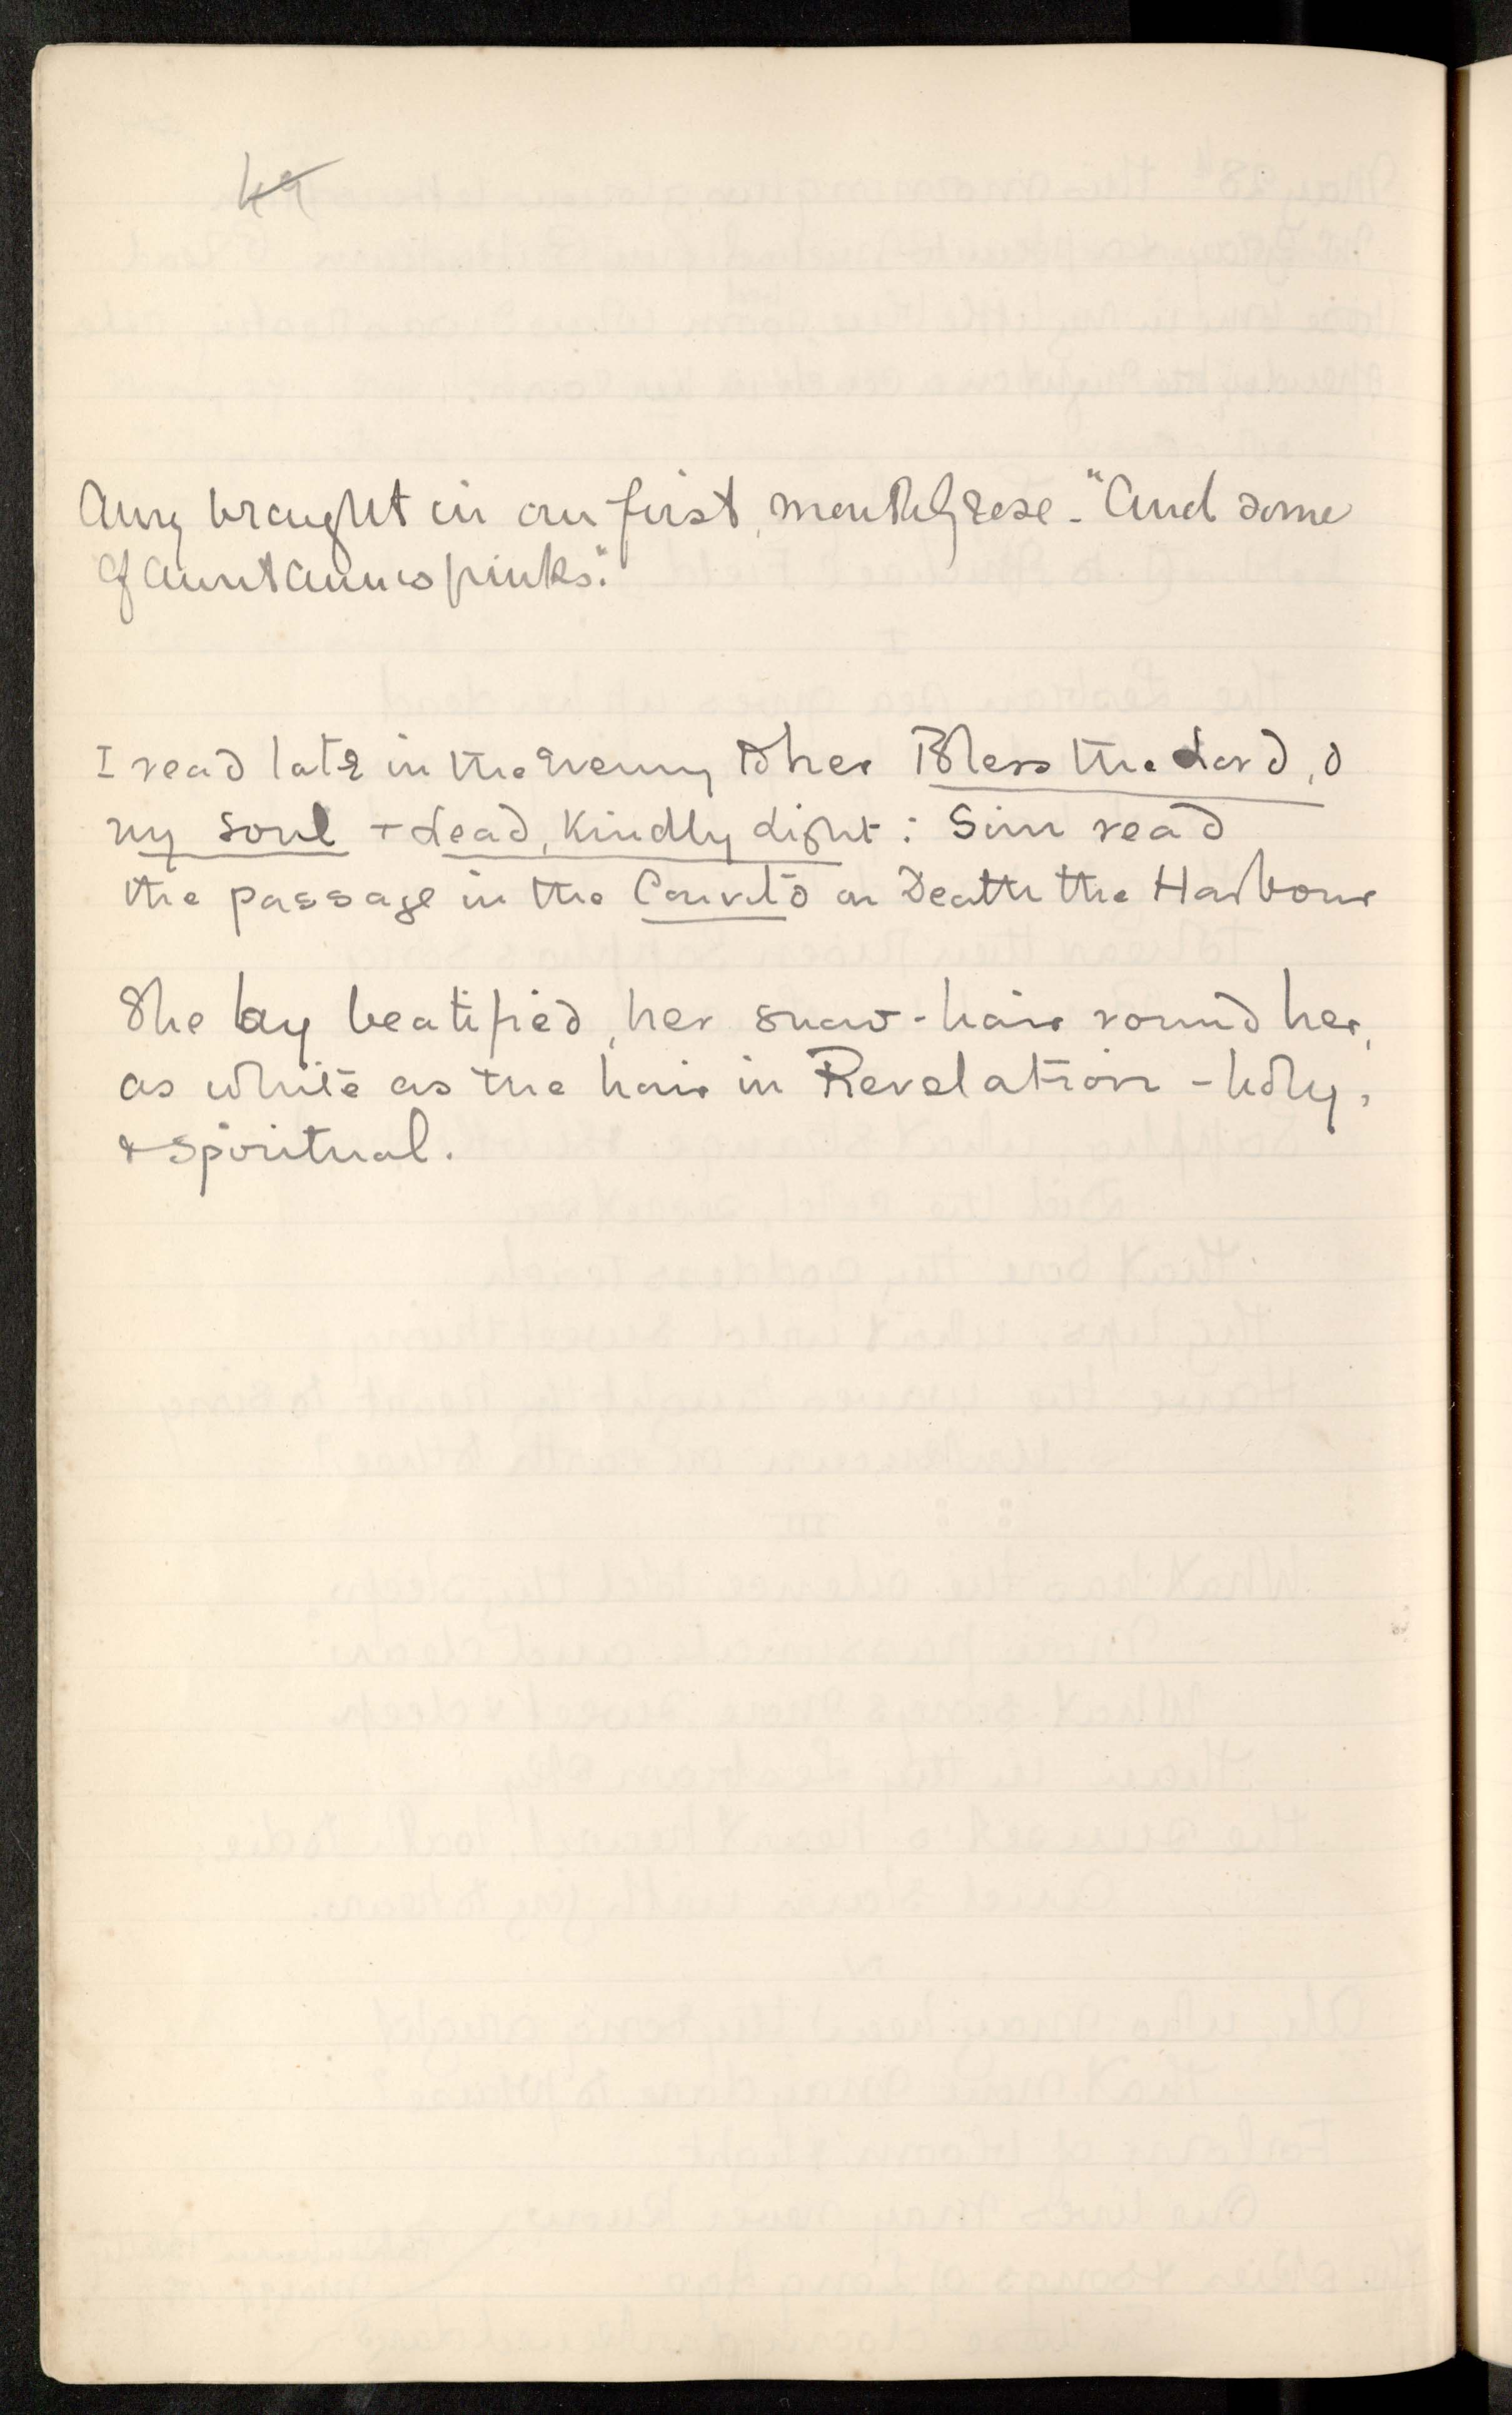 49
Amy brought in our first monthly rose - "And some
of Aunt Annie's pinks."
I read late in the Evening to her Bless the Lord, O
my soul + Lead, Kindly Light: Sim read
the passage in the Convito on Death the Harbour
She lay beatified, her snow-hair round her,
as white as the hair in Revelation - holy,
& spiritual.